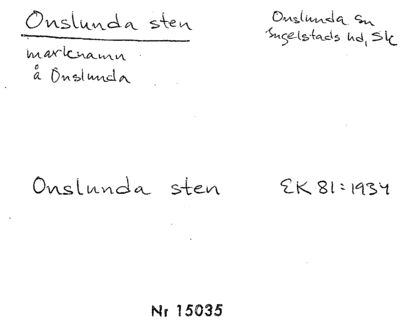 Onslunda sten
Onslunda sn
Ingelstads hd, Sk
marknamn
å Onslunda
Onslunda sten
EK 81:1934
Nr 15035